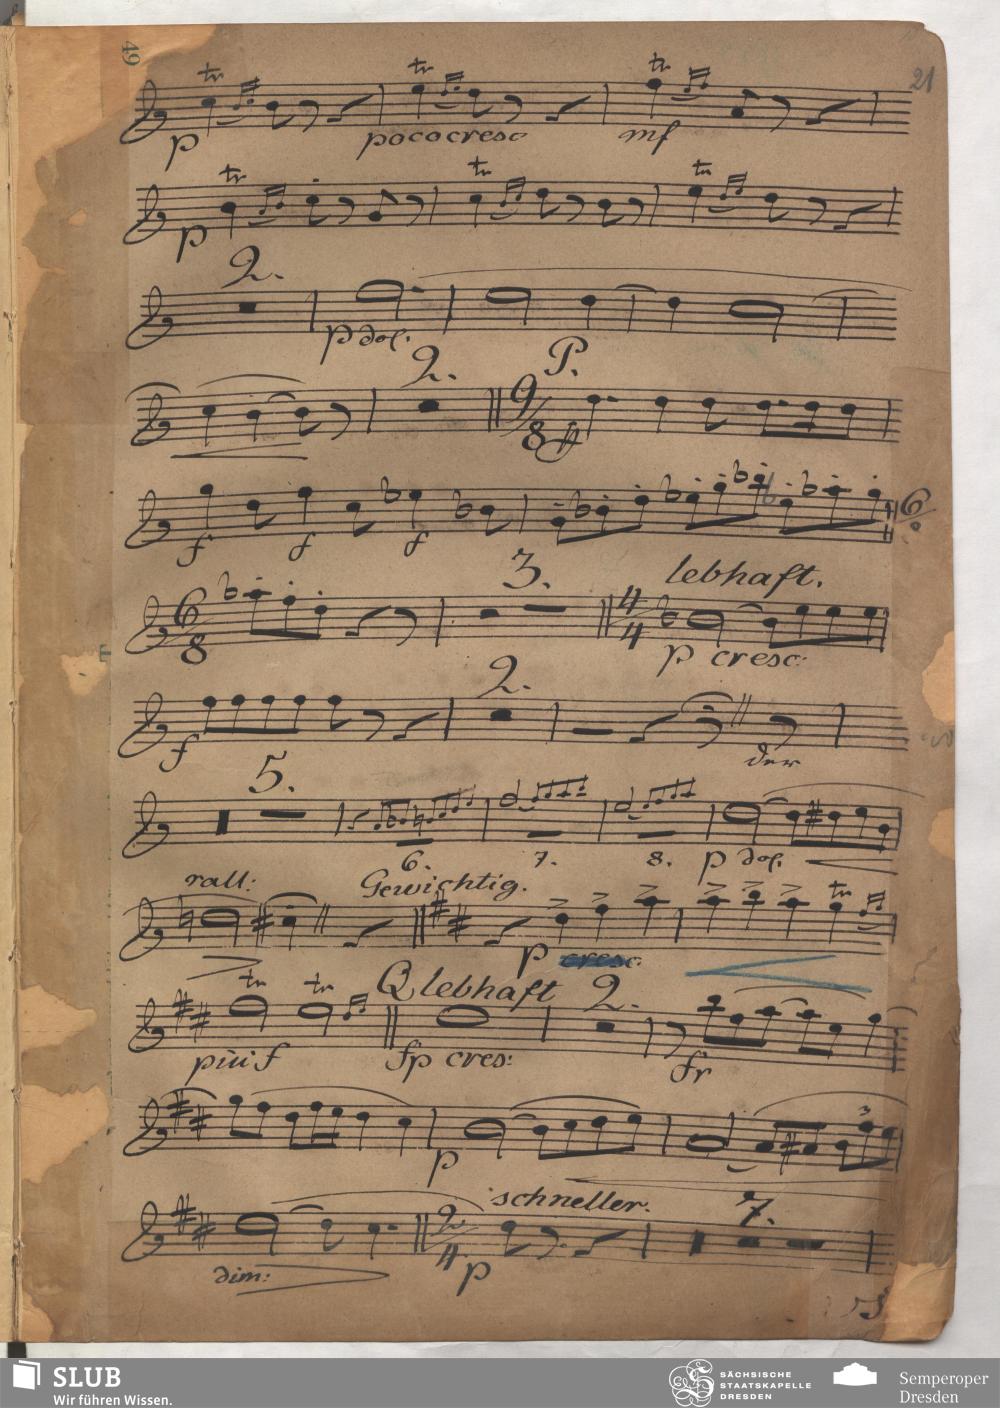 49
21
tr tr tr
p poco cresc mf
tr tr tr
p
2.
p dol.
2. P.
9/8 ff
f f f
6
3. lebhaft.
6/8 4/4
p cresc:
2.
f
der
5.
6. 7. 8. p dol.
rall: Gewichtig.
tr
p cresc
tr tr Q lebhaft 2.
più f fp cres: fr
3
p
schneller. 7.
2/4
dim: p
SLUB
Wir führen Wissen.
SÄCHSISCHE
STAATSKAPELLE
DRESDEN
Semperoper
Dresden